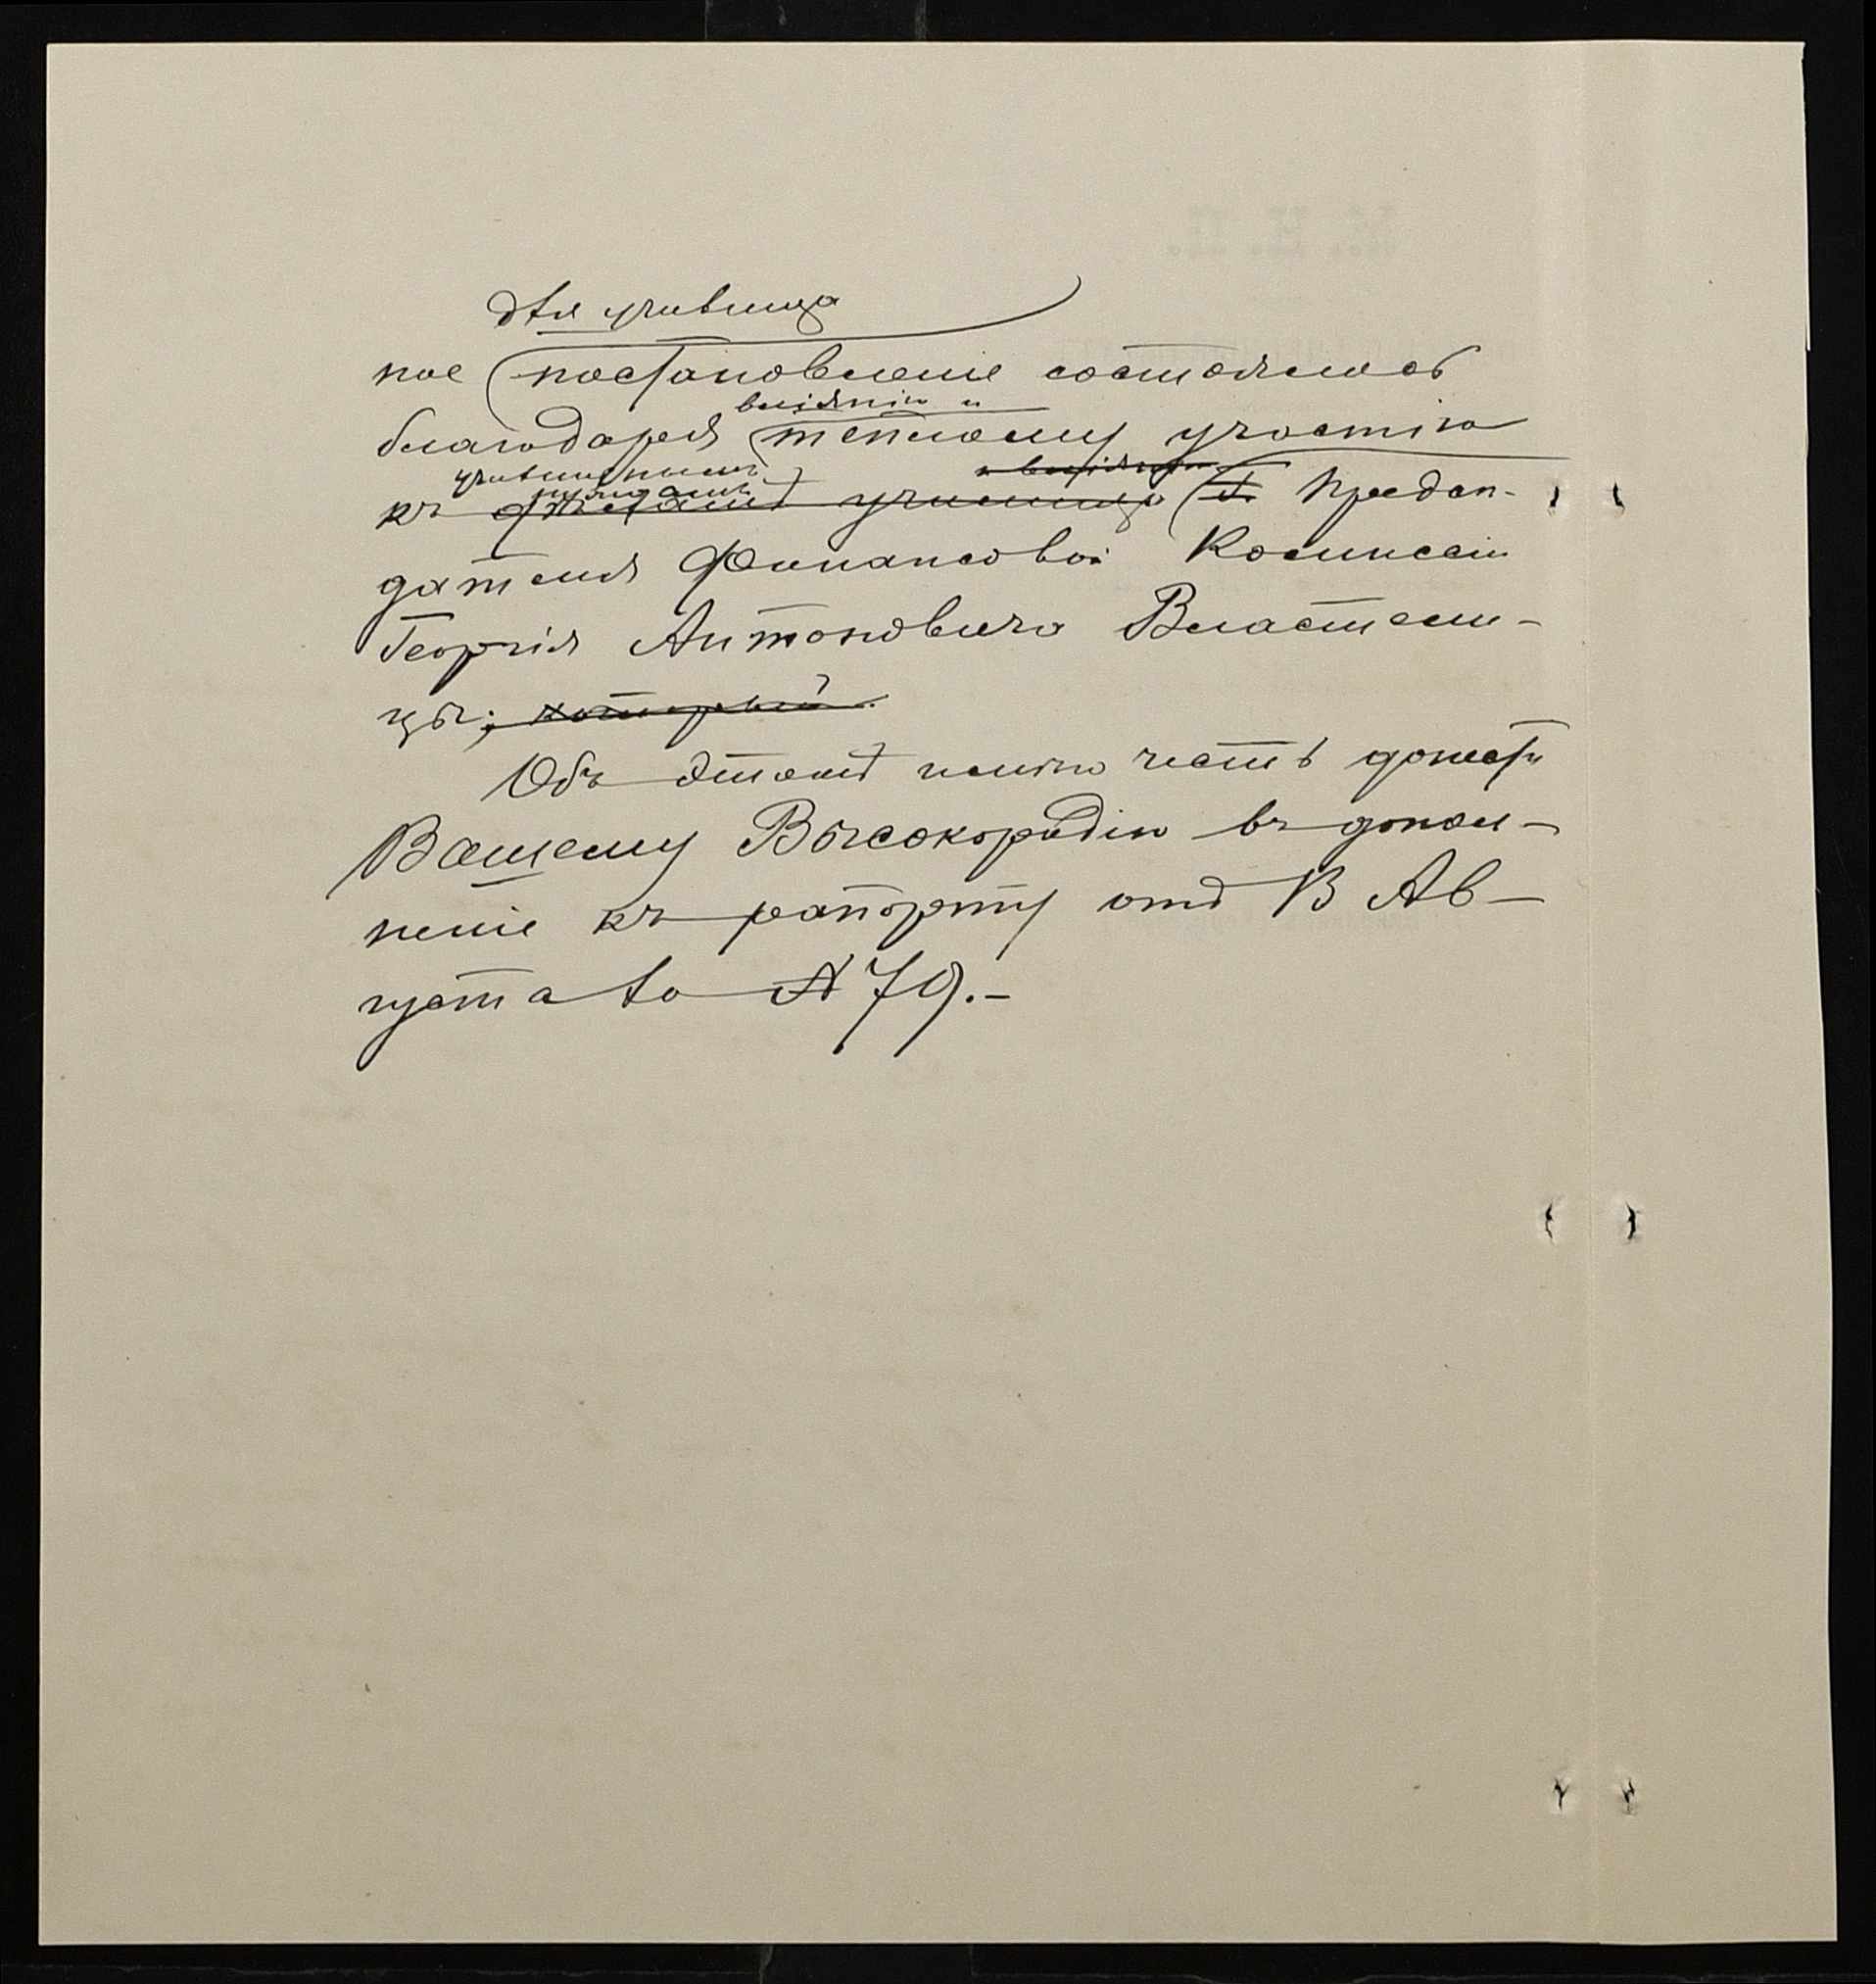 для училища
ное постановленіе состоялось
благодаря вліянію и теплому участію
къ училищнымъ нуждамъ училища и вліянію Г. Предсѣ-
дателя Финансовой Комиссіи
Георгія Антоновича Властели-
цы; который.
Объ этомъ имѣю честь донести
Вашему Высокородію въ допол-
неніе къ рапорту отъ 13 Ав-
густа за № 79.-